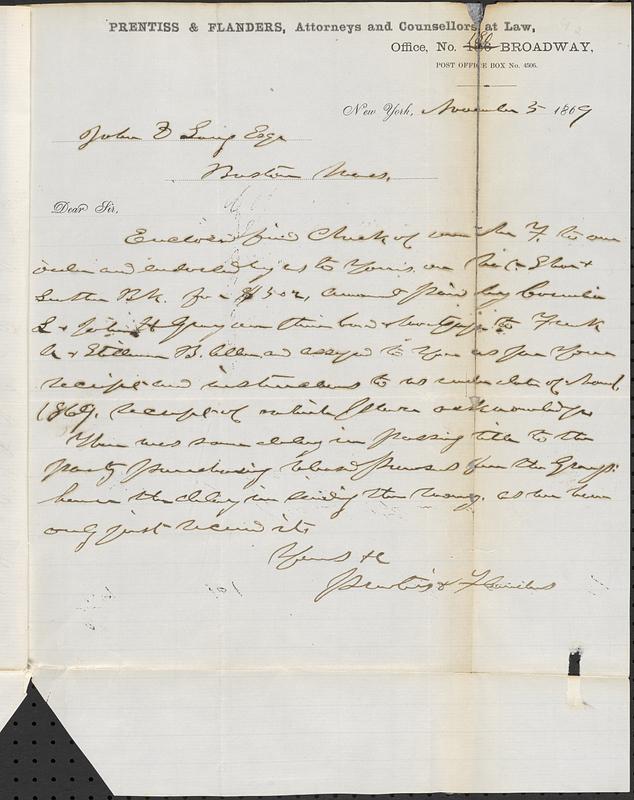 PRENTISS & FLANDERS, Attorneys and Counsellors at Law,
Office, No. 180 BROADWAY,
POST OFFICE BOX No. 4506.
New York, November 5 1869
John D Long Esqr
Boston Mass.
Dear Sir,
Enclosed find Check of to our
order and endorsed by us to Yours, on the
Bk. for $502, amount paid by Cornelia
S & John H Gray on their bond & mortgage to Fredk
& Stillman B. Allen and assigned to You as per Your
receipt and instructions to us under date of
1869, receipt of which please acknowledge
There was some delay in passing title to the
party purchasing premises from the Grays:
hence the delay in sending the money. as we have
only just received it.
Yours &c
Prentiss & Flanders